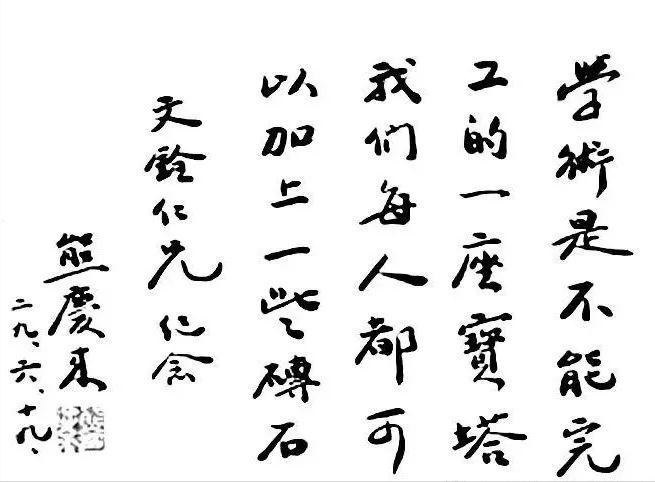 學術是不能完
工的一座寳塔
我们每人都可
以加上一些磚石
文銓仁兄 纪念
熊慶来
二九、六、十九、